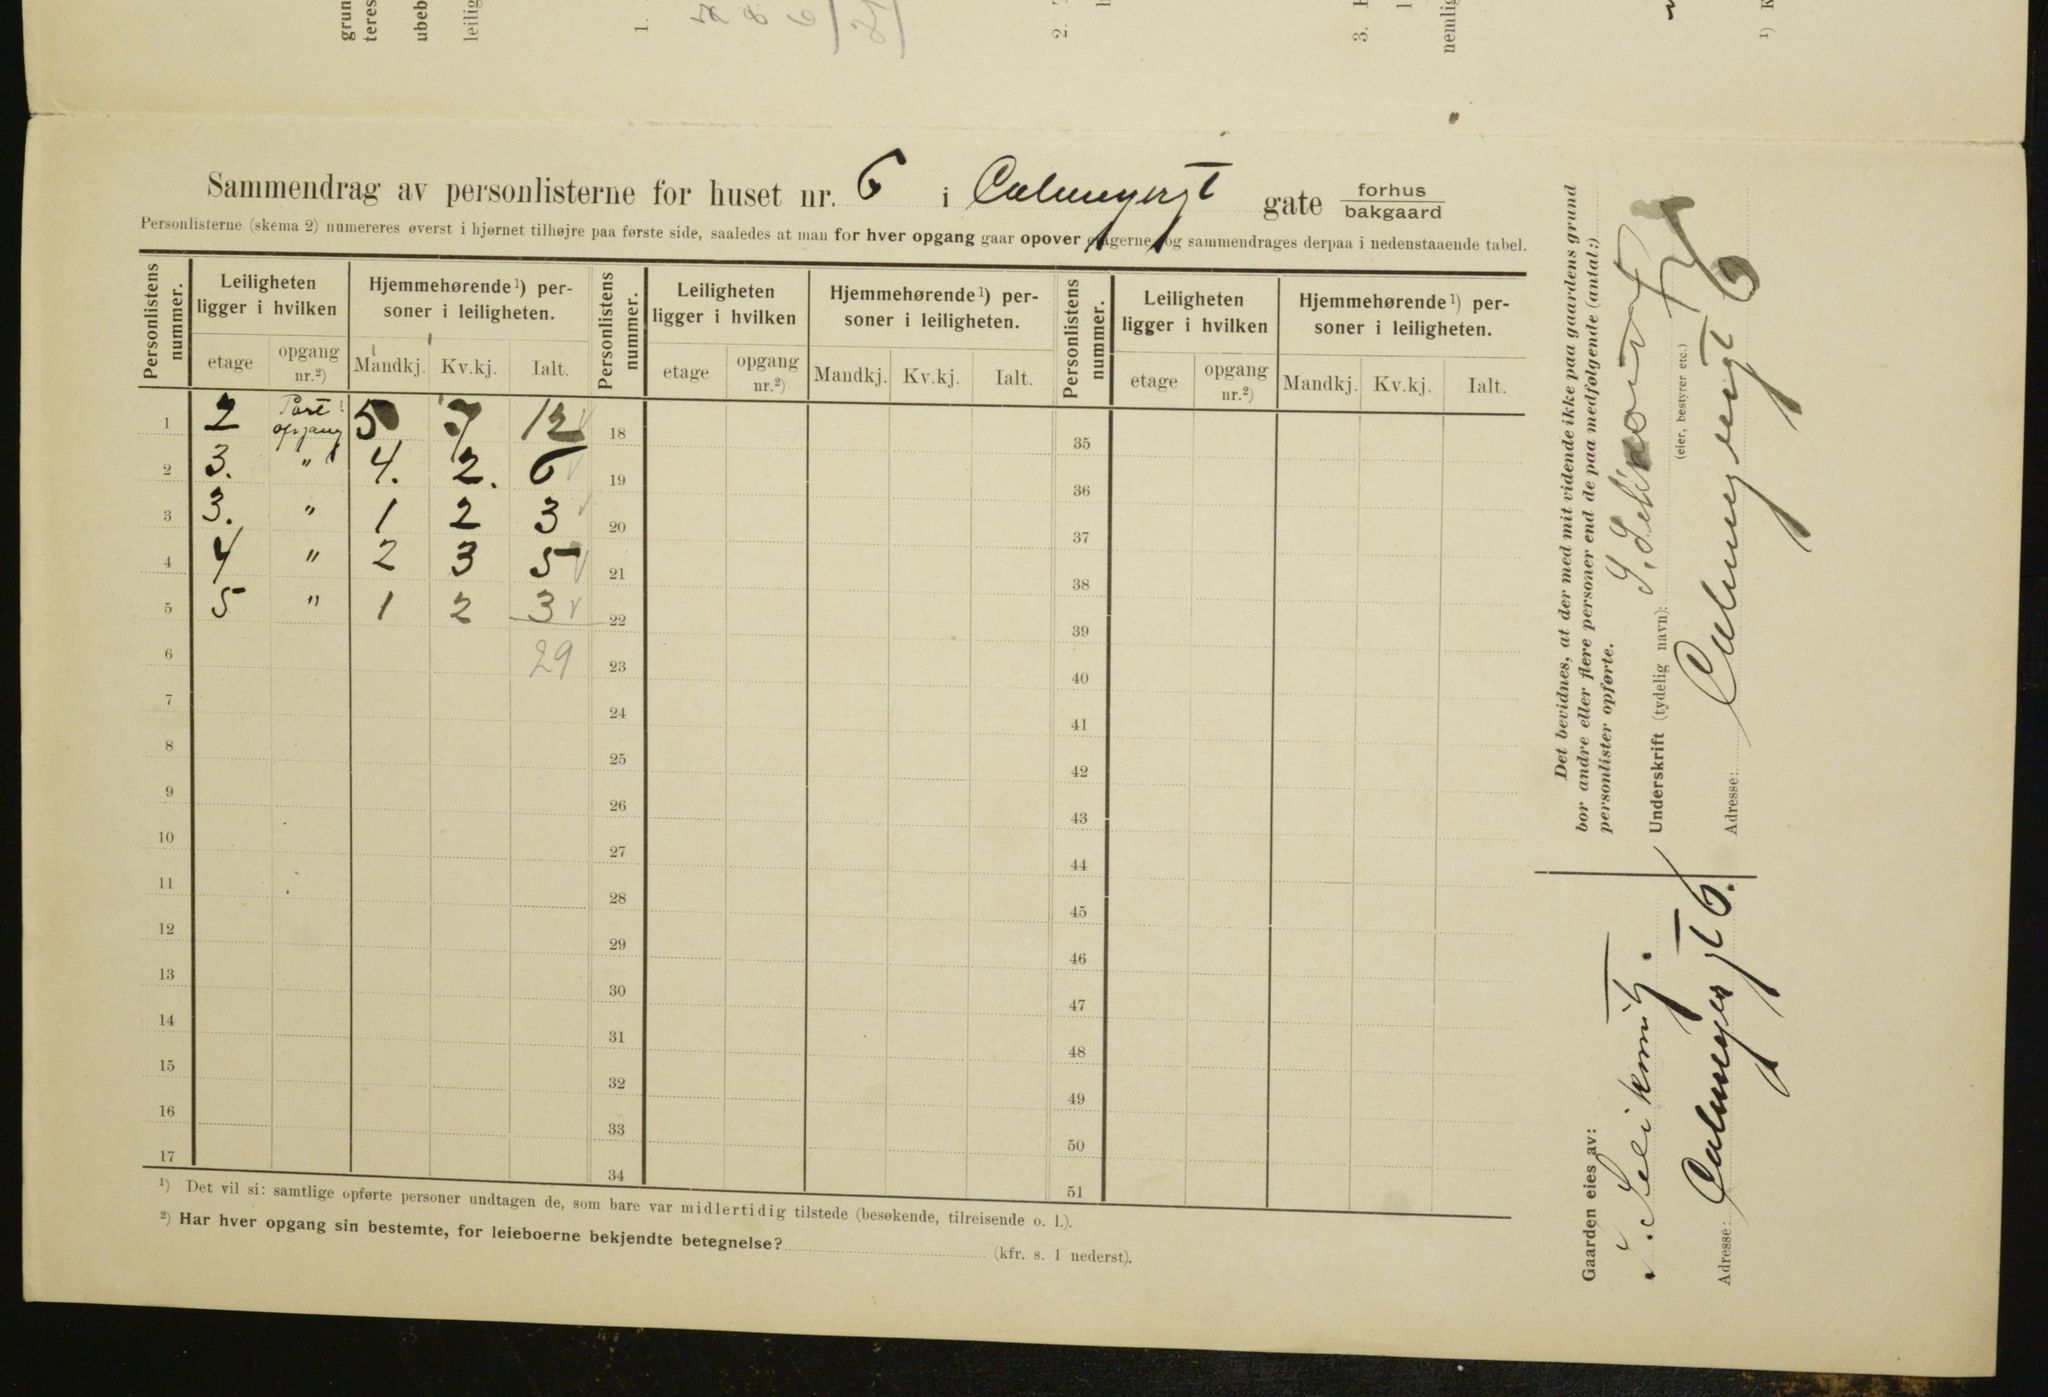 grun
teres
ubeb
leilig
1.
2.
3.
nemlig
1) K
Sammendrag av personlisterne for huset nr. 6 i Calmeyergt gate forhus
bakgaard
Personlisterne (skema 2) numereres øverst i hjørnet tilhøjre paa første side, saaledes at man for hver opgang gaar opover etagerne, og sammendrages derpaa i nedenstaaende tabel.
Personlistens nummer. Leiligheten ligger i hvilken Hjemmehørende 1) personer i leiligheten. Personlistens nummer. Leiligheten ligger i hvilken Hjemmehørende 1) personer i leiligheten. Personlistens nummer. Leiligheten ligger i hvilken Hjemmehørende 1) personer i leiligheten.
etage opgang nr.2) Mandkj. Kv.kj. Ialt. etage opgang nr.2) Mandkj. Kv.kj. Ialt. etage opgang nr.2) Mandkj. Kv.kj. Ialt.
1 2 Port opgang 5 7 12 18 35
2 3. " 4. 2. 6 19 36
3 3. " 1 2 3 20 37
4 4 " 2 3 5 21 38
5 5 " 1 2 3 22 39
6 29 23 40
7 24 41
8 25 42
9 26 43
10 27 44
11 28 45
12 29 46
13 30 47
14 31 48
15 32 49
16 33 50
17 34 51
1) Det vil si: samtlige opførte personer undtagen de, som bare var midlertidig tilstede (besøkende, tilreisende o. l.).
2) Har hver opgang sin bestemte, for leieboerne bekjendte betegnelse? (kfr. s. 1 nederst).
Det bevidnes, at der med mit vidende ikke paa gaardens grund
bor andre eller flere personer end de paa medfølgende (antal:)
personlister opførte.
Underskrift (tydelig navn):
(eier, bestyrer etc.)
Adresse: Calmeyergt 6
Gaarden eies av:
Adresse: Calmeyergt 6.